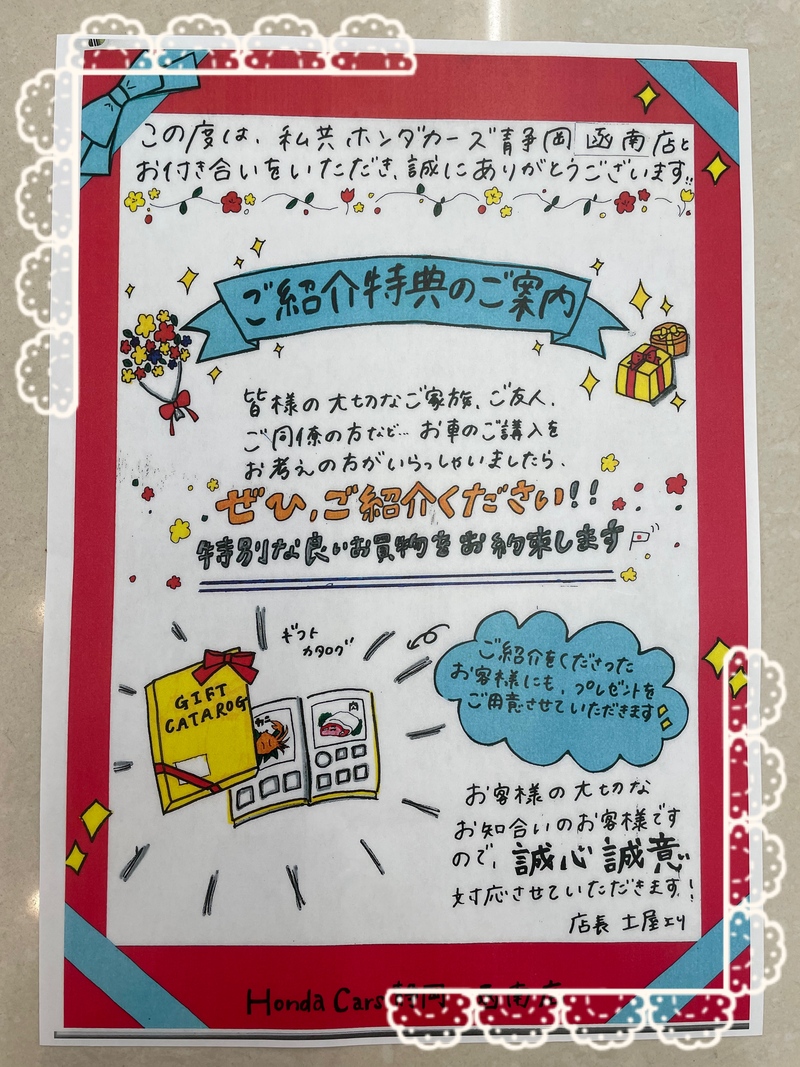 この度は、私共ホンダカーズ静岡 函南店と
お付き合いをいただき、誠にありがとうございます!!
ご紹介特典のご案内
皆様の大切なご家族、ご友人、
ご同僚の方など… お車のご講入を
お考えの方がいらっしゃいましたら、
ぜひ、ご紹介ください!!
特別な良いお買物をお約束します
ギフト
カタログ
GIFT
CATAROG
カニ
肉
ご紹介をくださった
お客様にも、プレゼントを
ご用意させていただきます
お客様の大切な
お知合いのお客様です
ので、誠心誠意
対応させていただきます!
店長 土屋エリ
Honda Cars 静岡 函南店